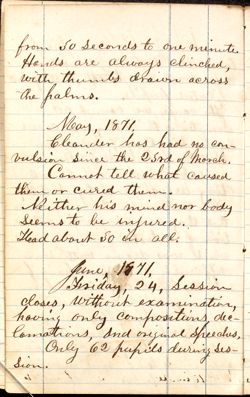 from 50 seconds to one minute
Hands are always clinched,
with thumbs drawn across
the palms.
May, 1871.
Cleander has had no con
vulsion since the 23rd of March.
Cannot tell what caused
them or cured them.
Neither his mind nor body
seems to be injured.
Had about 50 in all.
June, 1871.
Friday, 24, Session
closes, without examination,
having only compositions, dec
lamations, and original speeches.
Only 62 pupils during ses-
sion.